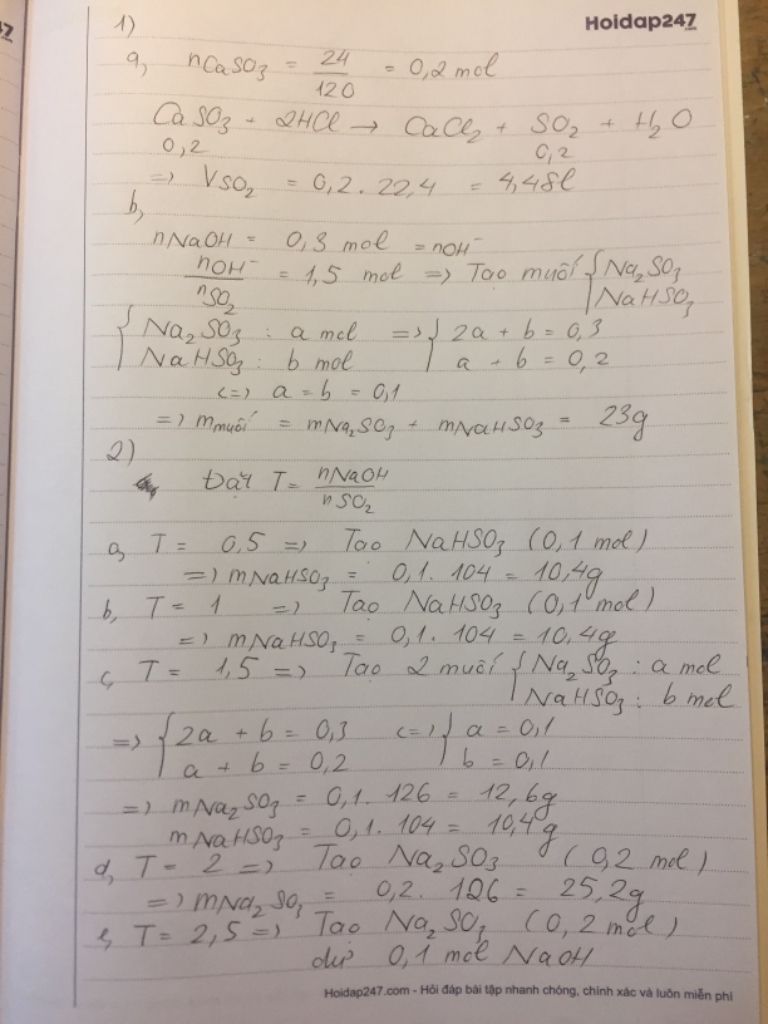 Hoidap247
1)
a, nCaSO3 = 24/120 = 0,2 mol
CaSO3 + 2HCl → CaCl2 + SO2 + H2O
0,2 0,2
=> VSO2 = 0,2. 22,4 = 4,48l
b,
nNaOH = 0,3 mol = nOH-
nOH-/nSO2 = 1,5 mol => Tạo muối { Na2SO3
NaHSO3
{ Na2SO3 : a mol => { 2a + b = 0,3
NaHSO3 : b mol a + b = 0,2
<=> a = b = 0,1
=> mmuối = mNa2SO3 + mNaHSO3 = 23g
2)
Đặt T = nNaOH/nSO2
a, T = 0,5 => Tạo NaHSO3 (0,1 mol)
=> mNaHSO3 = 0,1. 104 = 10,4g
b, T = 1 => Tạo NaHSO3 (0,1 mol)
=> mNaHSO3 = 0,1. 104 = 10,4g
c, T = 1,5 => Tạo 2 muối { Na2SO3 : a mol
NaHSO3 : b mol
=> { 2a + b = 0,3 <=> { a = 0,1
a + b = 0,2 b = 0,1
=> mNa2SO3 = 0,1. 126 = 12,6g
mNaHSO3 = 0,1. 104 = 10,4g
d, T = 2 => Tạo Na2SO3 (0,2 mol)
=> mNa2SO3 = 0,2. 126 = 25,2g
e, T = 2,5 => Tạo Na2SO3 (0,2 mol)
dư 0,1 mol NaOH
Hoidap247.com - Hỏi đáp bài tập nhanh chóng, chính xác và luôn miễn phí